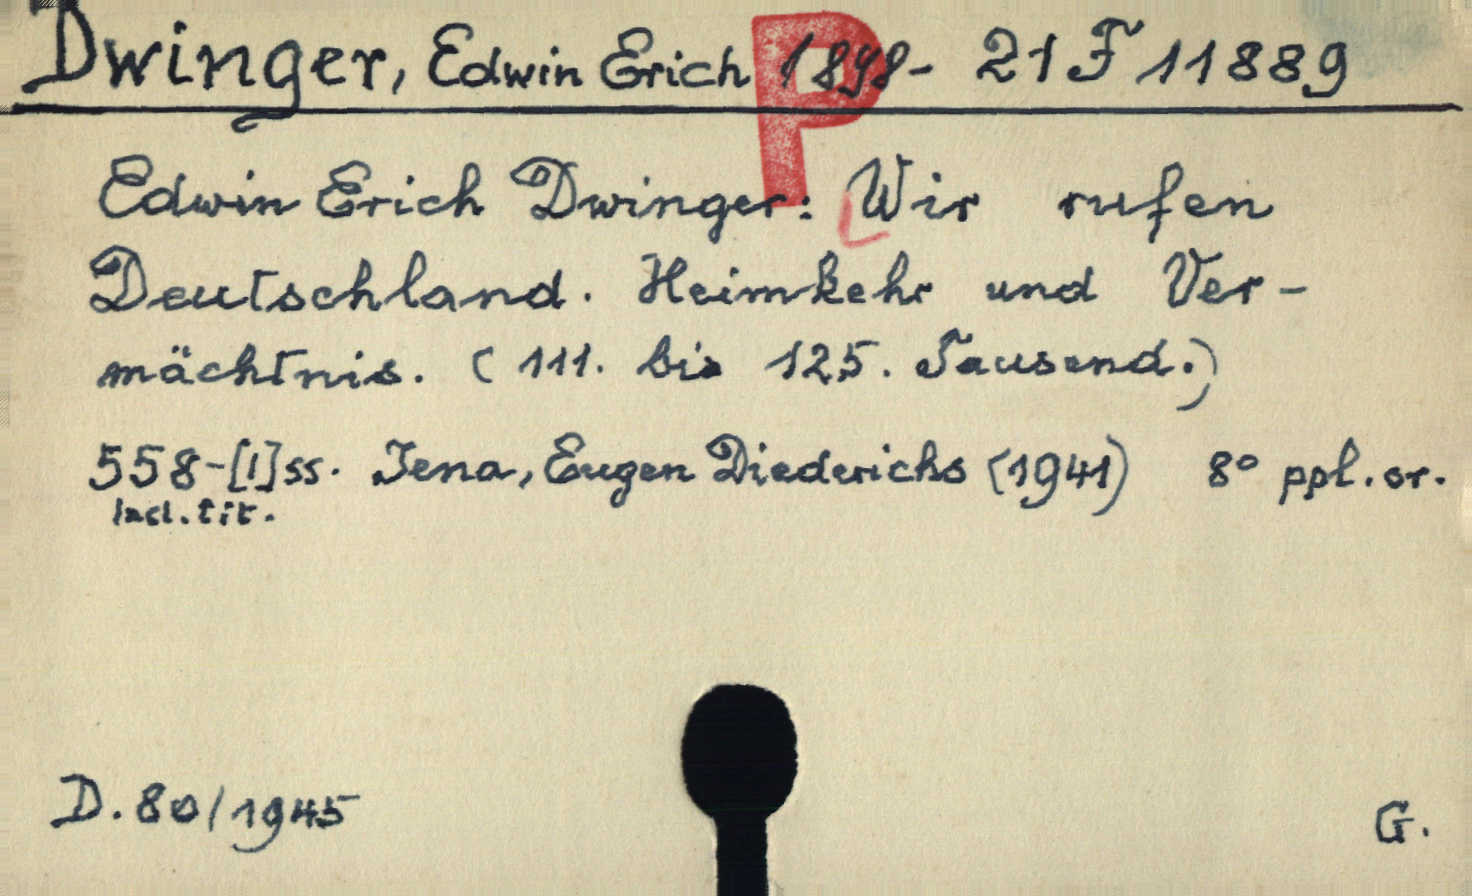 Dwinger, Edwin Erich 1898- 21 F 11889
P
Edwin Erich Dwinger: Wir rufen
Deutschland. Heimkehr und Ver-
mächtnis. (111. bis 125. Tausend.)
558-[1]ss. Jena, Eugen Diederichs (1941) 8° ppl. or.
incl. tit.
D. 80/1945
G.